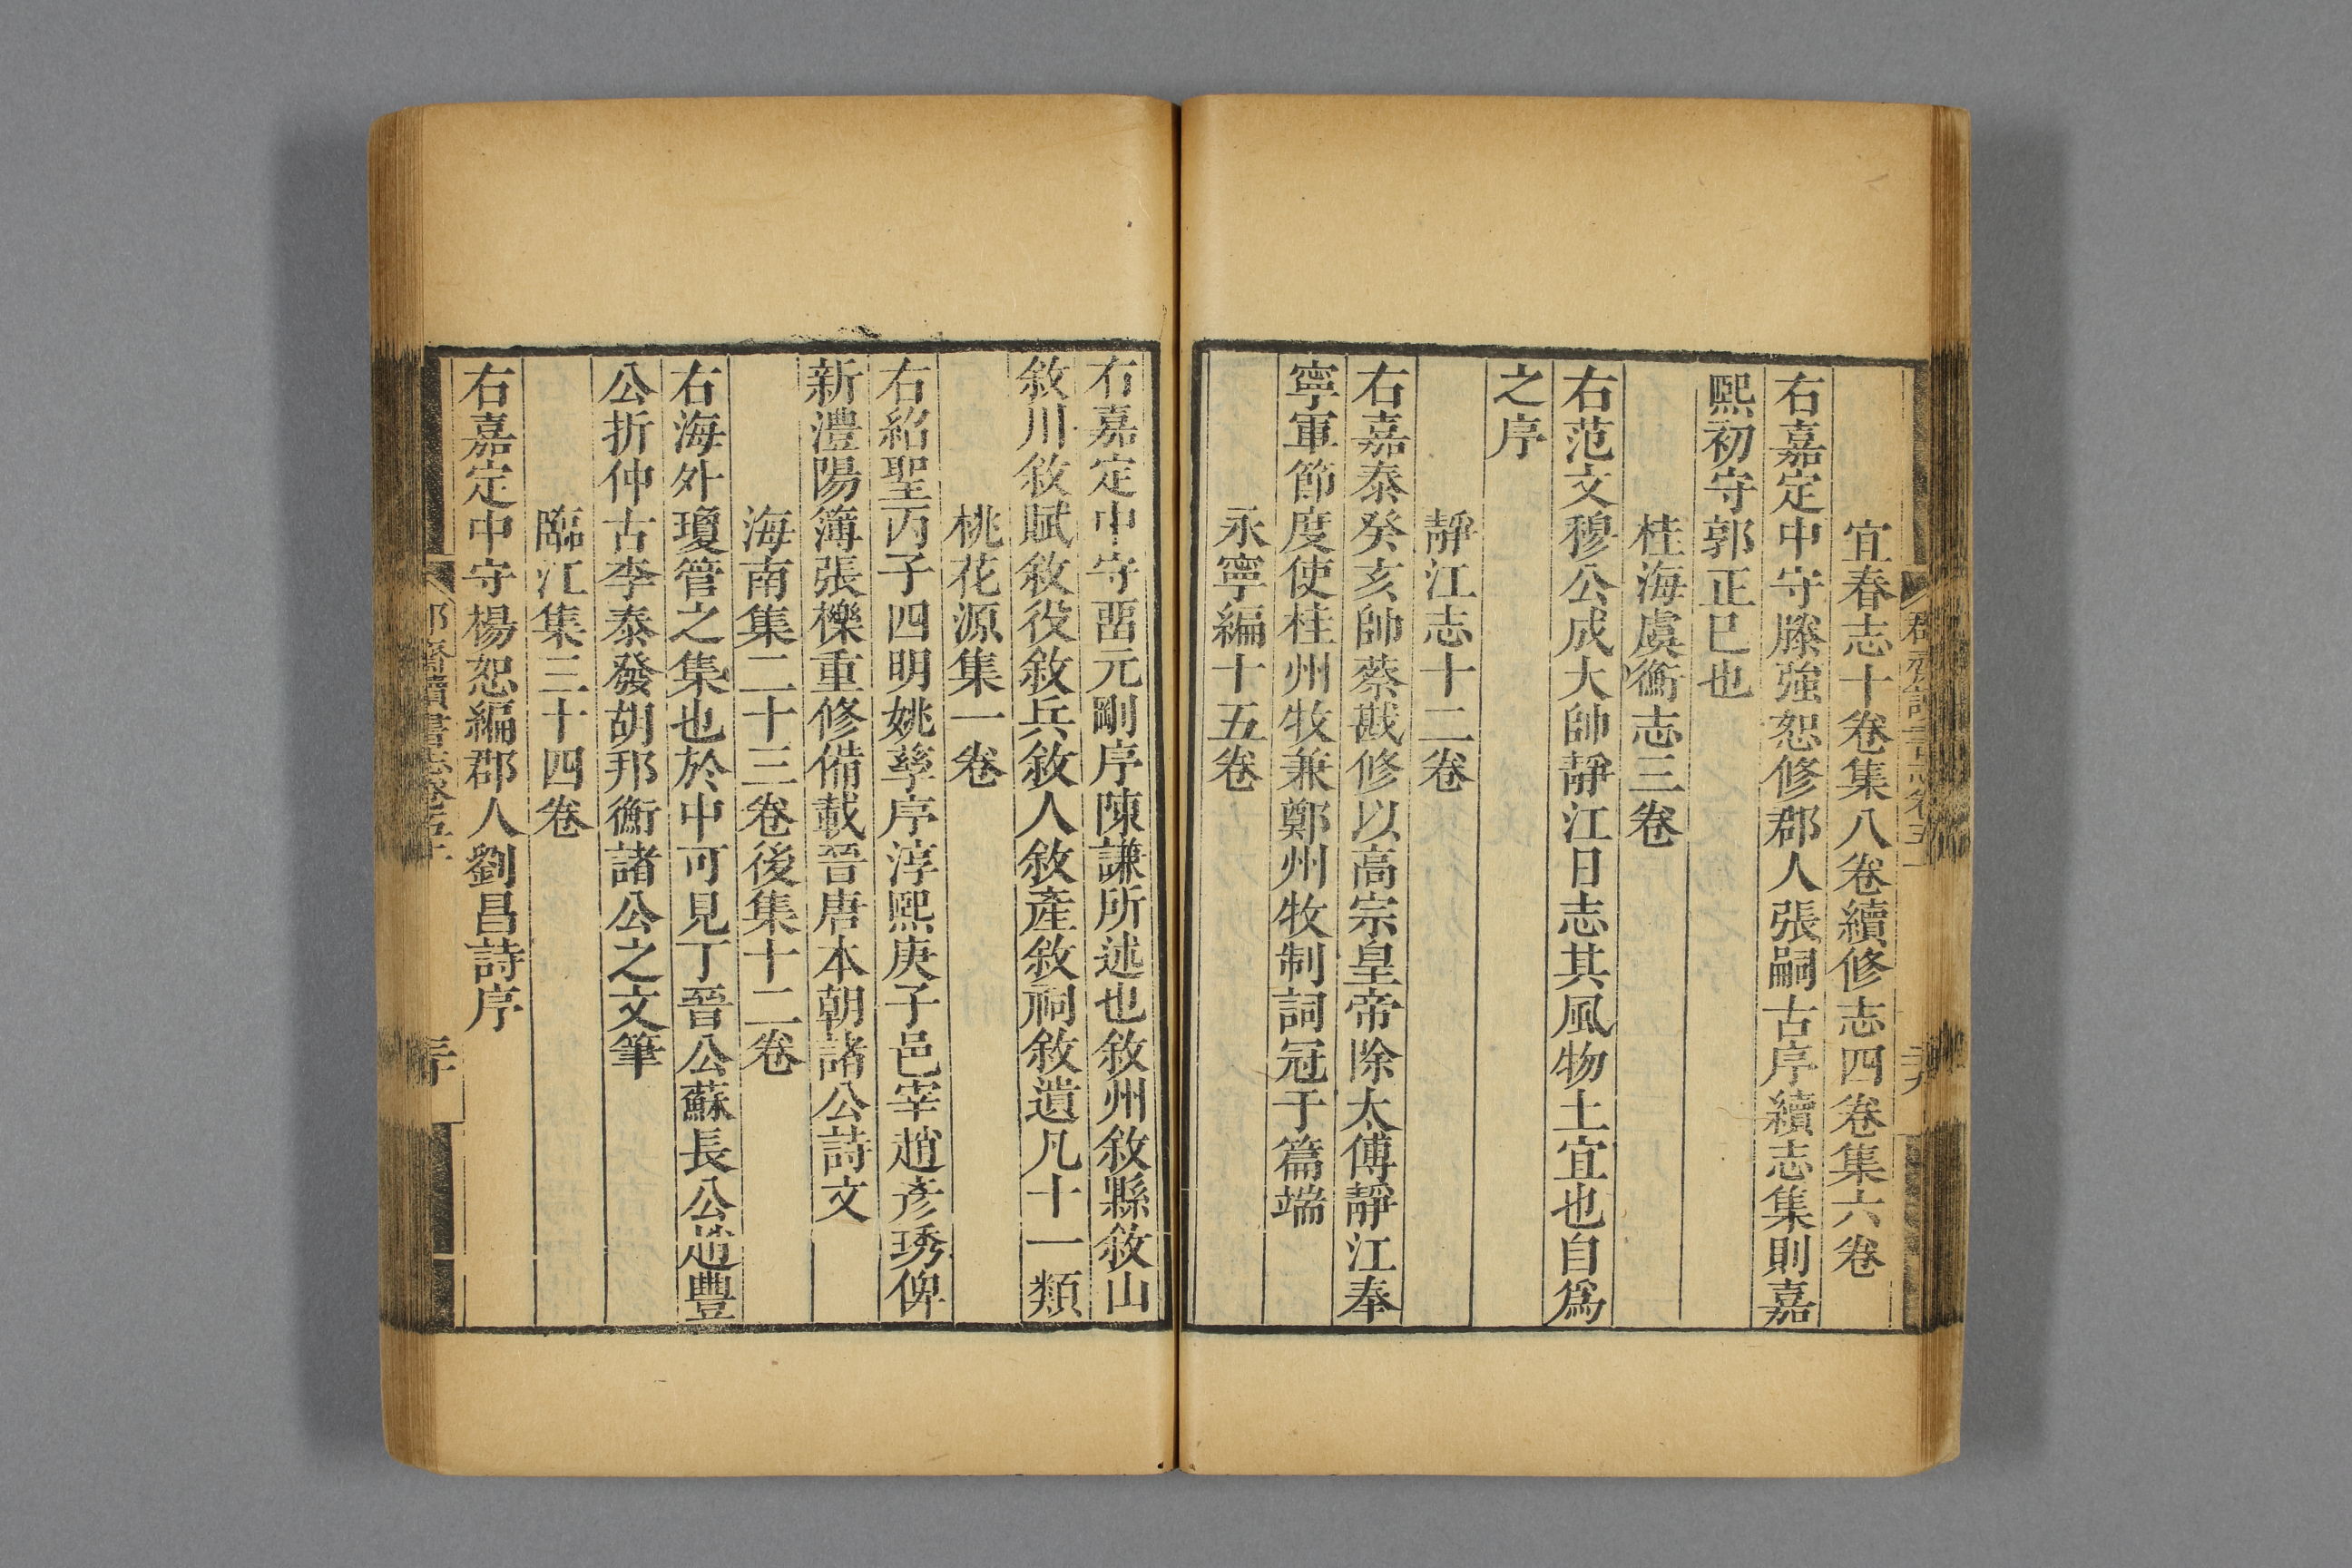 宜春志十卷集八卷續修志四卷集六卷
右嘉定中守滕強恕修郡人張嗣古序續志集則嘉
熙初守郭正已也
桂海虞衡志三卷
右范文穆公成大帥靜江日志其風物土宜也自爲
之序
靜江志十二卷
右嘉泰癸亥帥蔡戡修以高宗皇帝除太傅靜江奉
寧軍節度使桂州牧兼鄭州牧制詞冠于篇端
永寧編十五卷
右嘉定中守畱元剛序陳謙所述也敘州敘縣敘山
敘川敘賦敘役敘兵敘人敘產敘祠敘遺凡十一類
桃花源集一卷
右紹聖丙子四明姚孳序淳熙庚子邑宰趙彥琇俾
新澧陽簿張櫟重修備載晉唐本朝諸公詩文
海南集二十三卷後集十二卷
右海外瓊管之集也於中可見丁晉公蘇長公趙豐
公折仲古李泰發胡邦衡諸公之文筆
臨江集三十四卷
右嘉定中守楊恕編郡人劉昌詩序